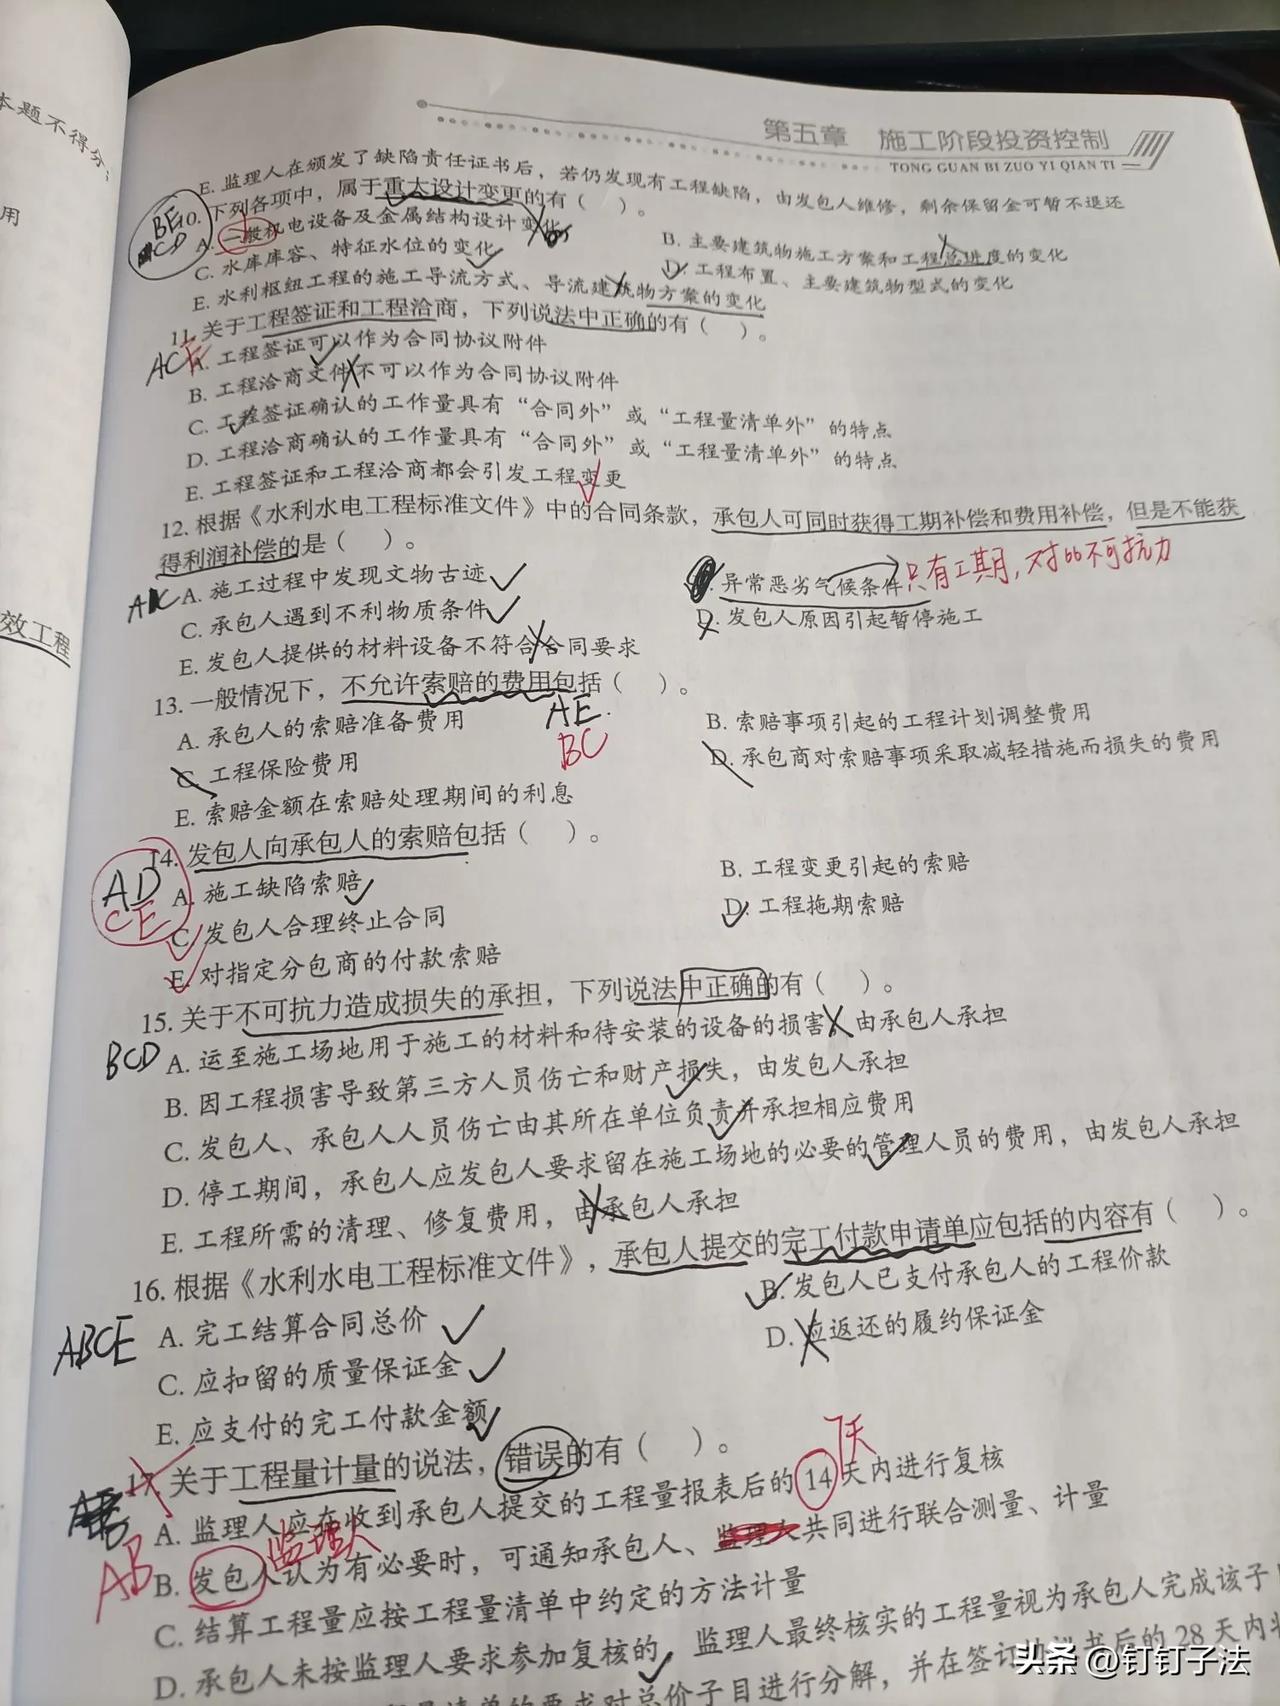 本题不得分。
用
效工程
第五章 施工阶段投资控制
TONG GUAN BI ZUO YI QIAN TI
E. 监理人在颁发了缺陷责任证书后，若仍发现有工程缺陷，由发包人维修，剩余保留金可暂不退还
10. 下列各项中，属于重大设计变更的有（ ）。
BE
CD
A. 一般机电设备及金属结构设计变化
B. 主要建筑物施工方案和工程总进度的变化
C. 水库库容、特征水位的变化
D. 工程布置、主要建筑物型式的变化
E. 水利枢纽工程的施工导流方式、导流建筑物方案的变化
11. 关于工程签证和工程洽商，下列说法中正确的有（ ）。
ACE
A. 工程签证可以作为合同协议附件
B. 工程洽商文件不可以作为合同协议附件
C. 工程签证确认的工作量具有“合同外”或“工程量清单外”的特点
D. 工程洽商确认的工作量具有“合同外”或“工程量清单外”的特点
E. 工程签证和工程洽商都会引发工程变更
12. 根据《水利水电工程标准文件》中的合同条款，承包人可同时获得工期补偿和费用补偿，但是不能获
得利润补偿的是（ ）。
A. 施工过程中发现文物古迹
异常恶劣气候条件
只有工期，对的不可抗力
C. 承包人遇到不利物质条件
D. 发包人原因引起暂停施工
E. 发包人提供的材料设备不符合合同要求
13. 一般情况下，不允许索赔的费用包括（ ）。
AE
BC
A. 承包人的索赔准备费用
B. 索赔事项引起的工程计划调整费用
C. 工程保险费用
D. 承包商对索赔事项采取减轻措施而损失的费用
E. 索赔金额在索赔处理期间的利息
14. 发包人向承包人的索赔包括（ ）。
AD
CE
A. 施工缺陷索赔
B. 工程变更引起的索赔
C. 发包人合理终止合同
D. 工程拖期索赔
E. 对指定分包商的付款索赔
15. 关于不可抗力造成损失的承担，下列说法中正确的有（ ）。
BCD
A. 运至施工场地用于施工的材料和待安装的设备的损害，由承包人承担
B. 因工程损害导致第三方人员伤亡和财产损失，由发包人承担
C. 发包人、承包人人员伤亡由其所在单位负责并承担相应费用
D. 停工期间，承包人应发包人要求留在施工场地的必要的管理人员的费用，由发包人承担
E. 工程所需的清理、修复费用，由承包人承担
16. 根据《水利水电工程标准文件》，承包人提交的完工付款申请单应包括的内容有（ ）。
ABCE
A. 完工结算合同总价
B. 发包人已支付承包人的工程价款
C. 应扣留的质量保证金
D. 应返还的履约保证金
E. 应支付的完工付款金额
17. 关于工程量计量的说法，错误的有（ ）。
7天
A. 监理人应在收到承包人提交的工程量报表后的14天内进行复核
监理人
AB
B. 发包人认为有必要时，可通知承包人、监理人共同进行联合测量、计量
C. 结算工程量应按工程量清单中约定的方法计量
D. 承包人未按监理人要求参加复核的，监理人最终核实的工程量视为承包人完成该子
要求对总价子目进行分解，并在签订协议书后的28天内
头条 @钉钉子法